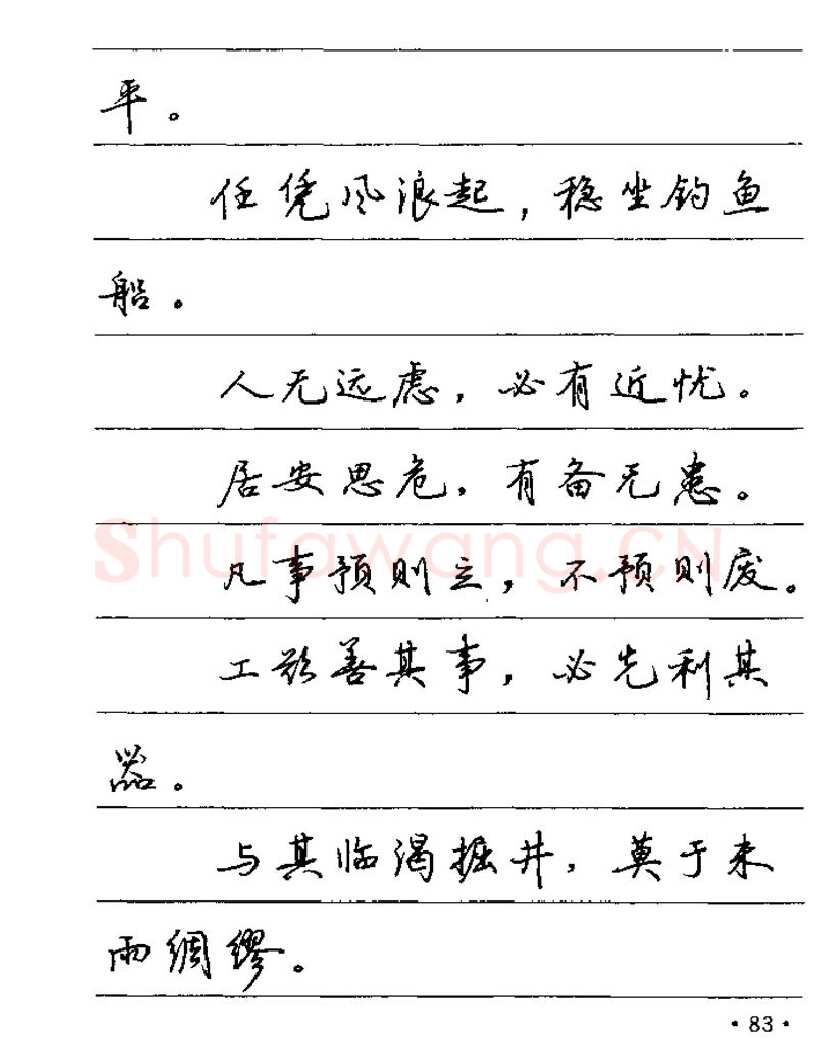 平。
任凭风浪起，稳坐钓鱼
船。
人无远虑，必有近忧。
居安思危，有备无患。
Shufawang.CN
凡事预则立，不预则废。
工欲善其事，必先利其
器。
与其临渴掘井，莫于未
雨绸缪。
·83·